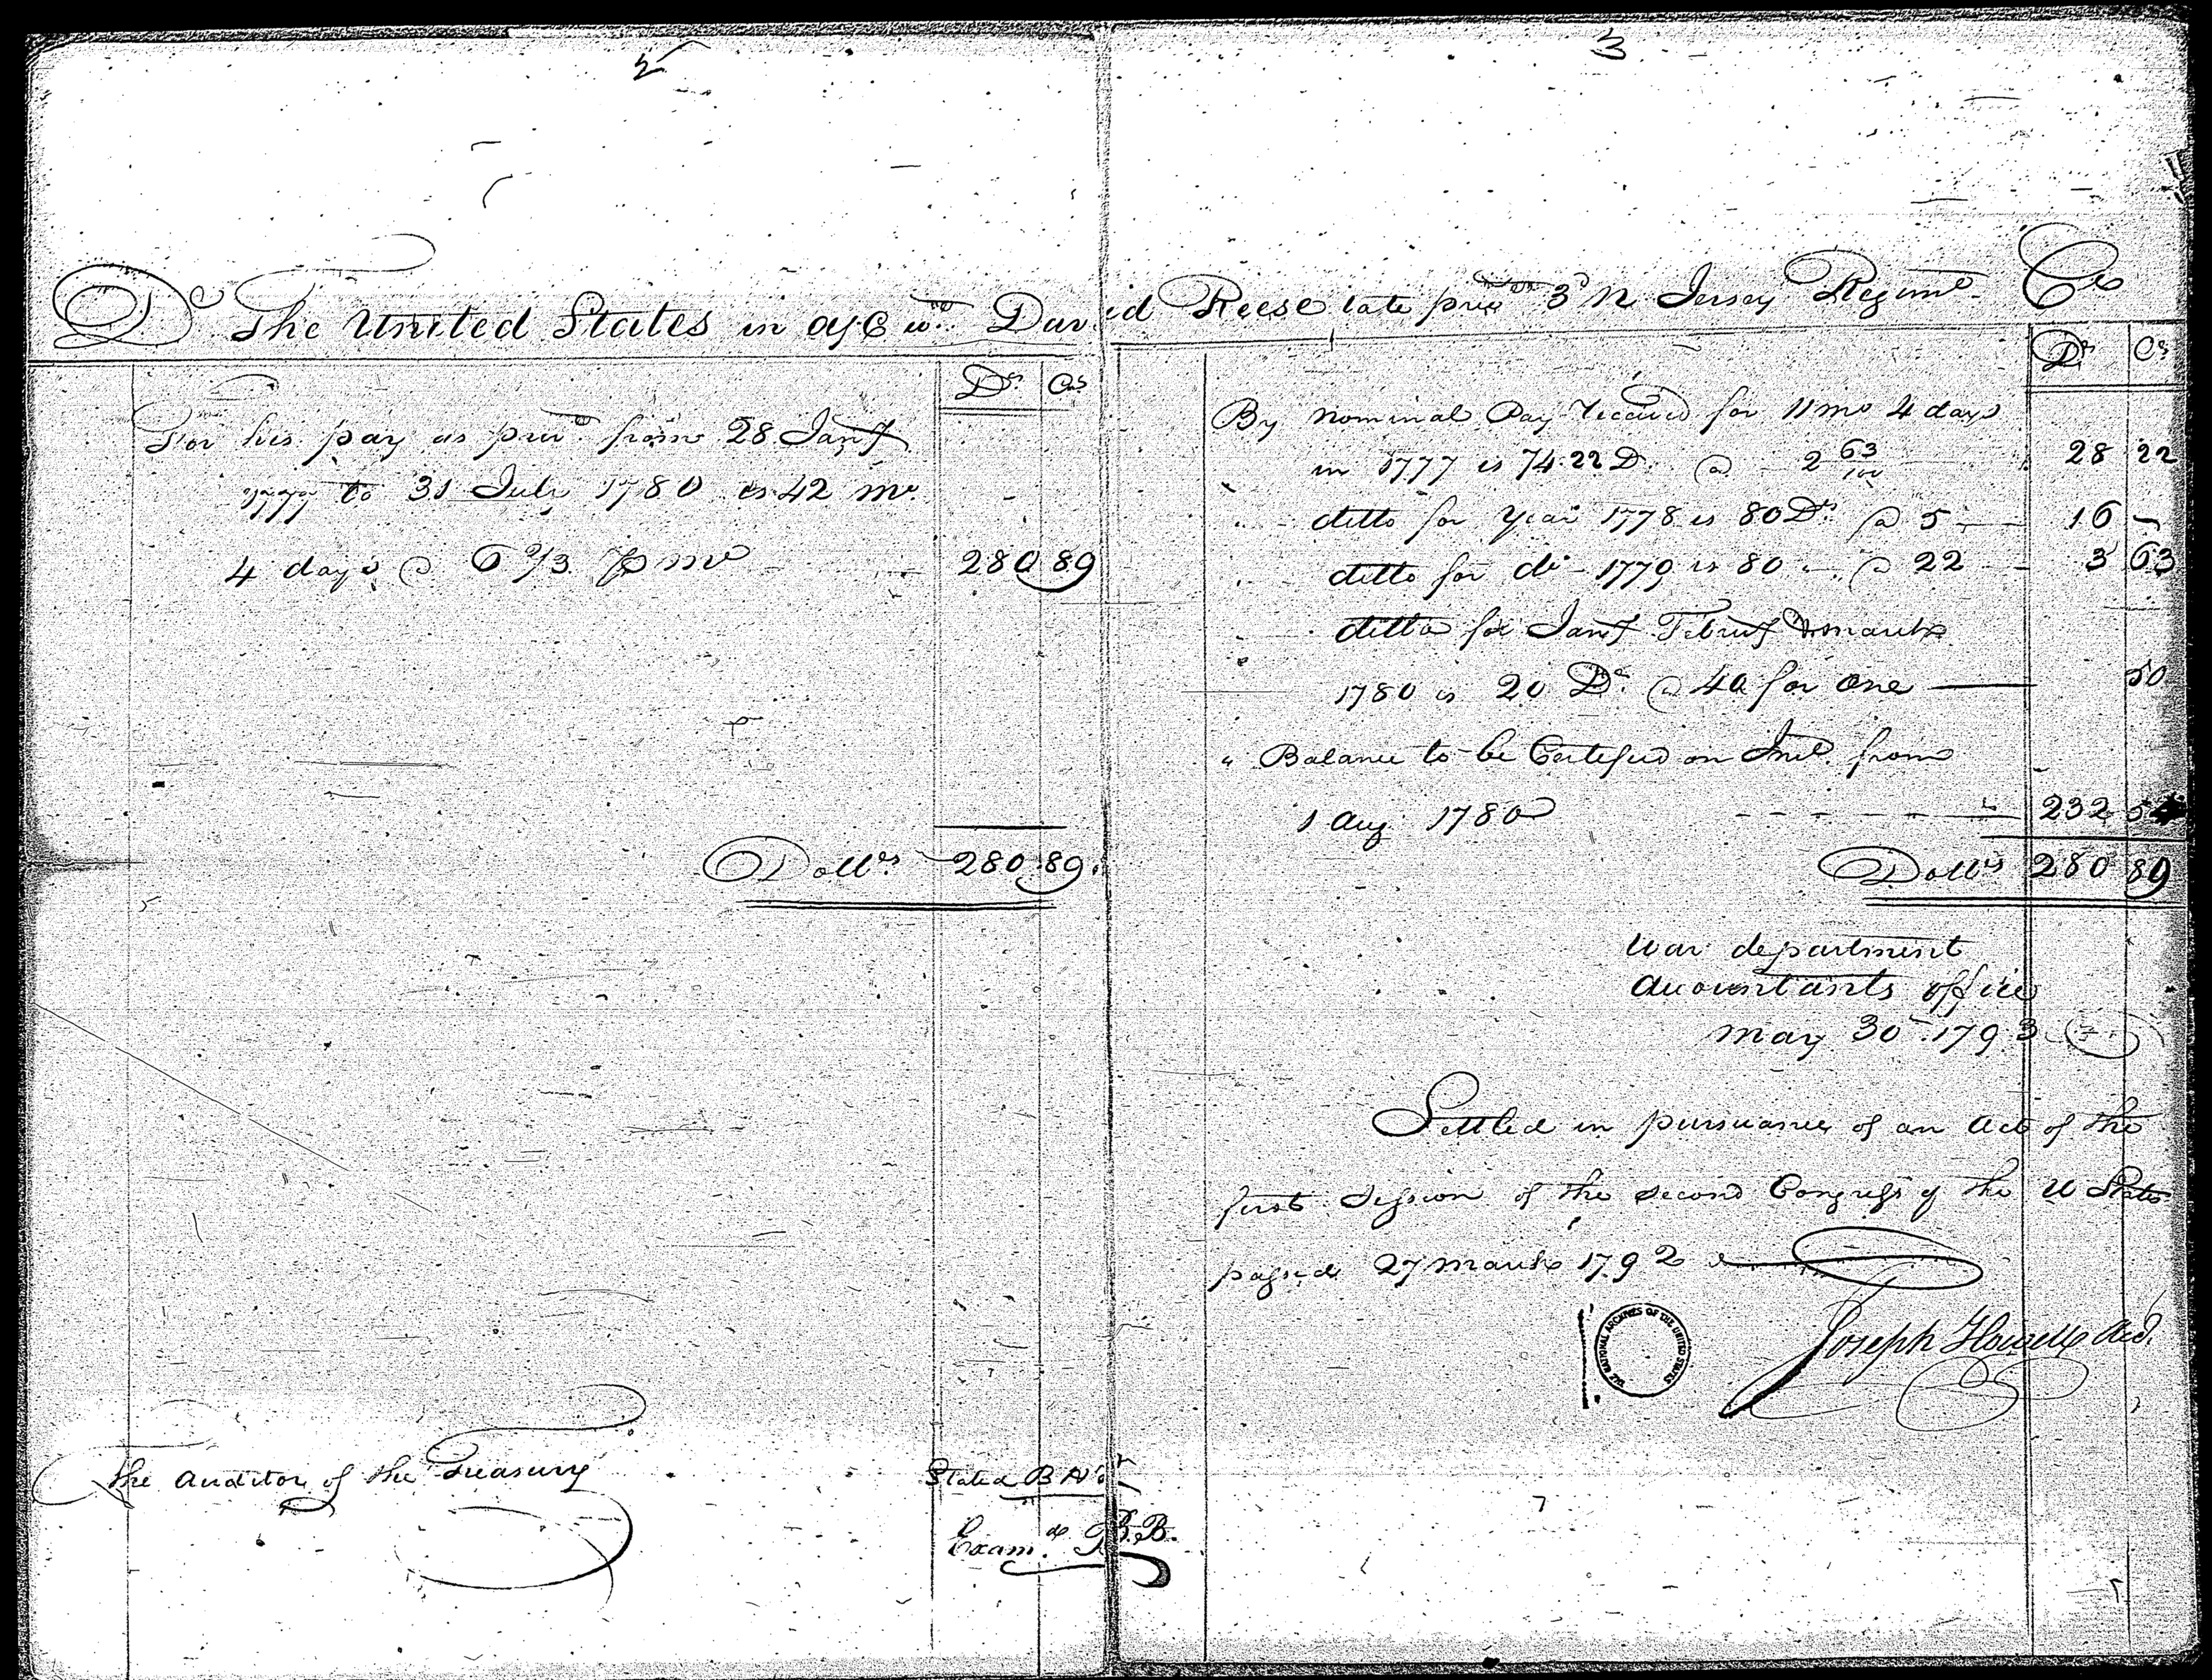 2
Dr The United States in a/c wth David Reese late privt 3d N Jersey Regimt Cr
Drs Cts
For his pay as privt from 28 Jany
1777 to 31 July 1780 is 42 mo
4 days @ 6 2/3 p mo 280 89
Dollrs 280 89
The Auditor of the Treasury
Stated B
Examd B.B.
3
Drs Cts
By Nominal Pay received for 11 mo 4 days
in 1777 is 74.22 D. @ 2 63/100 28 22
" ditto for Year 1778 is 80 Drs @ 5 16 -
" ditto for do 1779 is 80 - @ 22 3 63
ditto for Jany Februy & March
" 1780 is 20 Drs @ 40 for one 50
" Balance to be Certified on Int. from
1 Aug 1780 232 54
Dollrs 280 89
War department
Accountants office
May 30th 1793
Settled in pursuance of an Act of the
first Session of the Second Congress of the U States
passed 27 March 1792
THE NATIONAL ARCHIVES OF THE UNITED STATES
Joseph Howell Act.